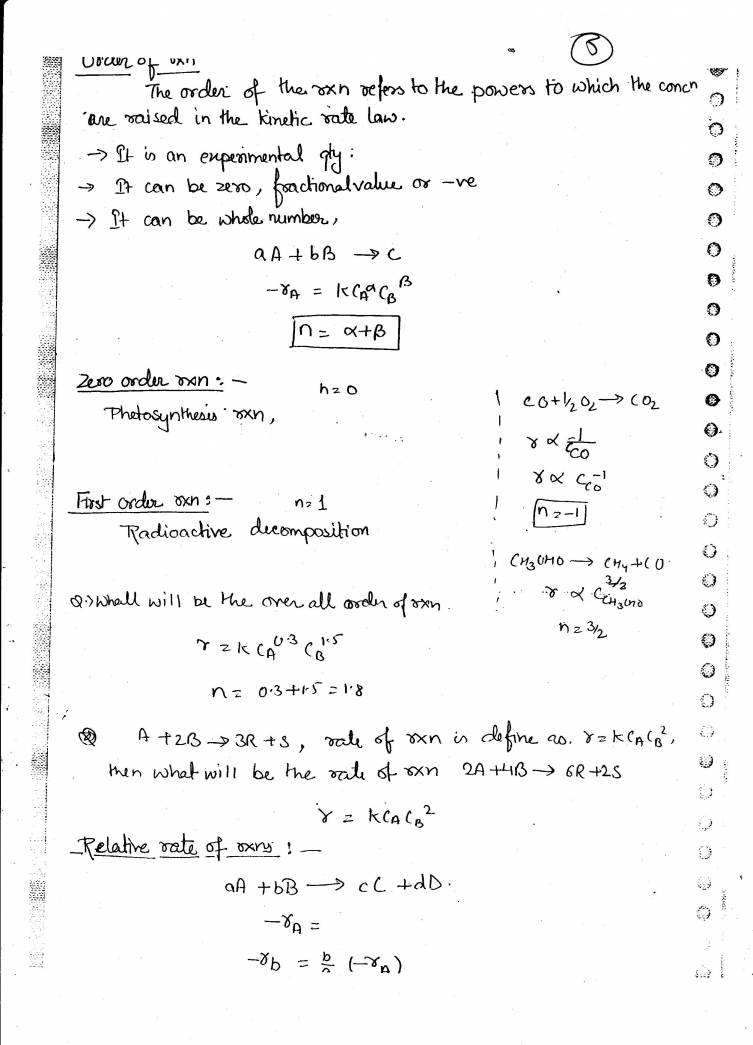 5
Order of rxn
The order of the rxn refers to the powers to which the concn
are raised in the kinetic rate law.
→ It is an experimental qty:
→ It can be zero, fractional value or -ve
→ It can be whole number,
aA + bB → C
-rA = kCA^α CB^β
n = α+β
Zero order rxn :- n=0
Photosynthesis rxn,
CO + 1/2 O2 → CO2
r ∝ 1/CCO
r ∝ CCO^-1
n=-1
First order rxn :- n=1
Radioactive decomposition
CH3CHO → CH4 + CO
r ∝ CCH3CHO^3/2
n=3/2
Q.> Whall will be the over all order of rxn.
r = k CA^0.3 CB^1.5
n = 0.3+1.5 = 1.8
Q A + 2B → 3R + S, rate of rxn is define as. r = kCACB^2,
then what will be the rate of rxn 2A + 4B → 6R + 2S
r = kCACB^2
Relative rate of rxns :-
aA + bB → cC + dD.
-rA =
-rb = b/a (-rA)